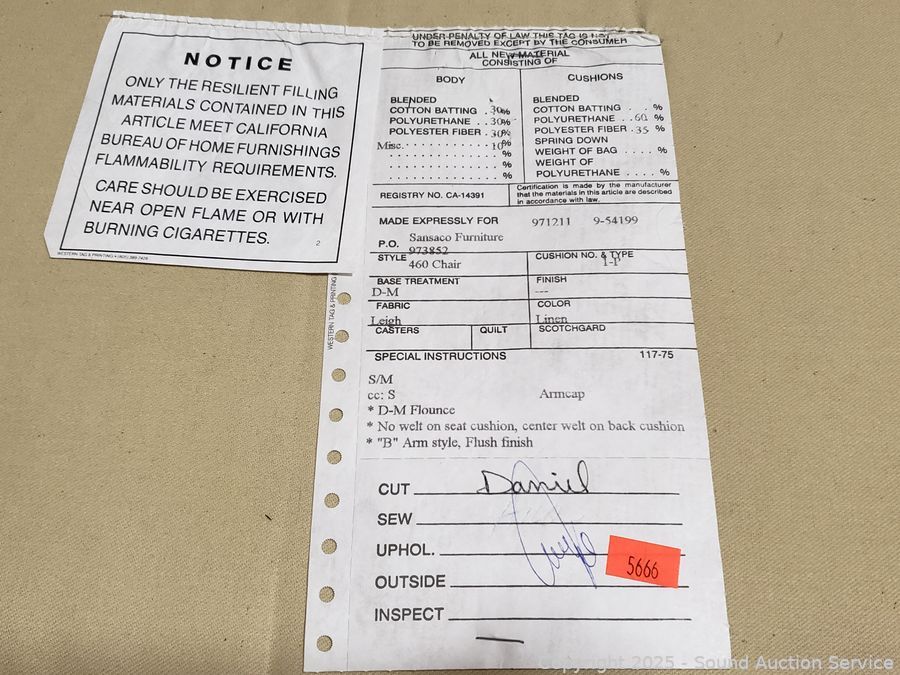 NOTICE
ONLY THE RESILIENT FILLING
MATERIALS CONTAINED IN THIS
ARTICLE MEET CALIFORNIA
BUREAU OF HOME FURNISHINGS
FLAMMABILITY REQUIREMENTS.
CARE SHOULD BE EXERCISED
NEAR OPEN FLAME OR WITH
BURNING CIGARETTES.
2
WESTERN TAG & PRINTING
UNDER PENALTY OF LAW THIS TAG IS NOT
TO BE REMOVED EXCEPT BY THE CONSUMER
ALL NEW MATERIAL
CONSISTING OF
BODY
BLENDED
COTTON BATTING . 30%
POLYURETHANE . . 30%
POLYESTER FIBER . 30%
Misc. . . . . . . . . . 10%
. . . . . . . . . . . . . . %
. . . . . . . . . . . . . . %
. . . . . . . . . . . . . . %
CUSHIONS
BLENDED
COTTON BATTING . . . %
POLYURETHANE . . 60 %
POLYESTER FIBER . 35 %
SPRING DOWN
WEIGHT OF BAG . . . . %
WEIGHT OF
POLYURETHANE . . . . %
REGISTRY NO. CA-14391
Certification is made by the manufacturer
that the materials in this article are described
in accordance with law.
MADE EXPRESSLY FOR 971211 9-54199
Sansaco Furniture
P.O. 973852
STYLE 460 Chair
CUSHION NO. & TYPE
1-P
BASE TREATMENT
D-M
FINISH
---
FABRIC
Leigh
COLOR
Linen
CASTERS QUILT SCOTCHGARD
WESTERN TAG & PRINTING
SPECIAL INSTRUCTIONS 117-75
S/M
cc: S Armcap
* D-M Flounce
* No welt on seat cushion, center welt on back cushion
* "B" Arm style, Flush finish
CUT Daniel
SEW
UPHOL.
5666
OUTSIDE
INSPECT
Copyright 2025 - Sound Auction Service